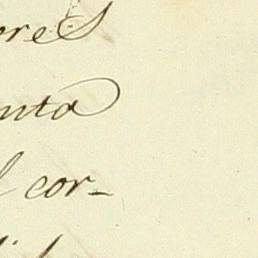 ores
nta
l cor-